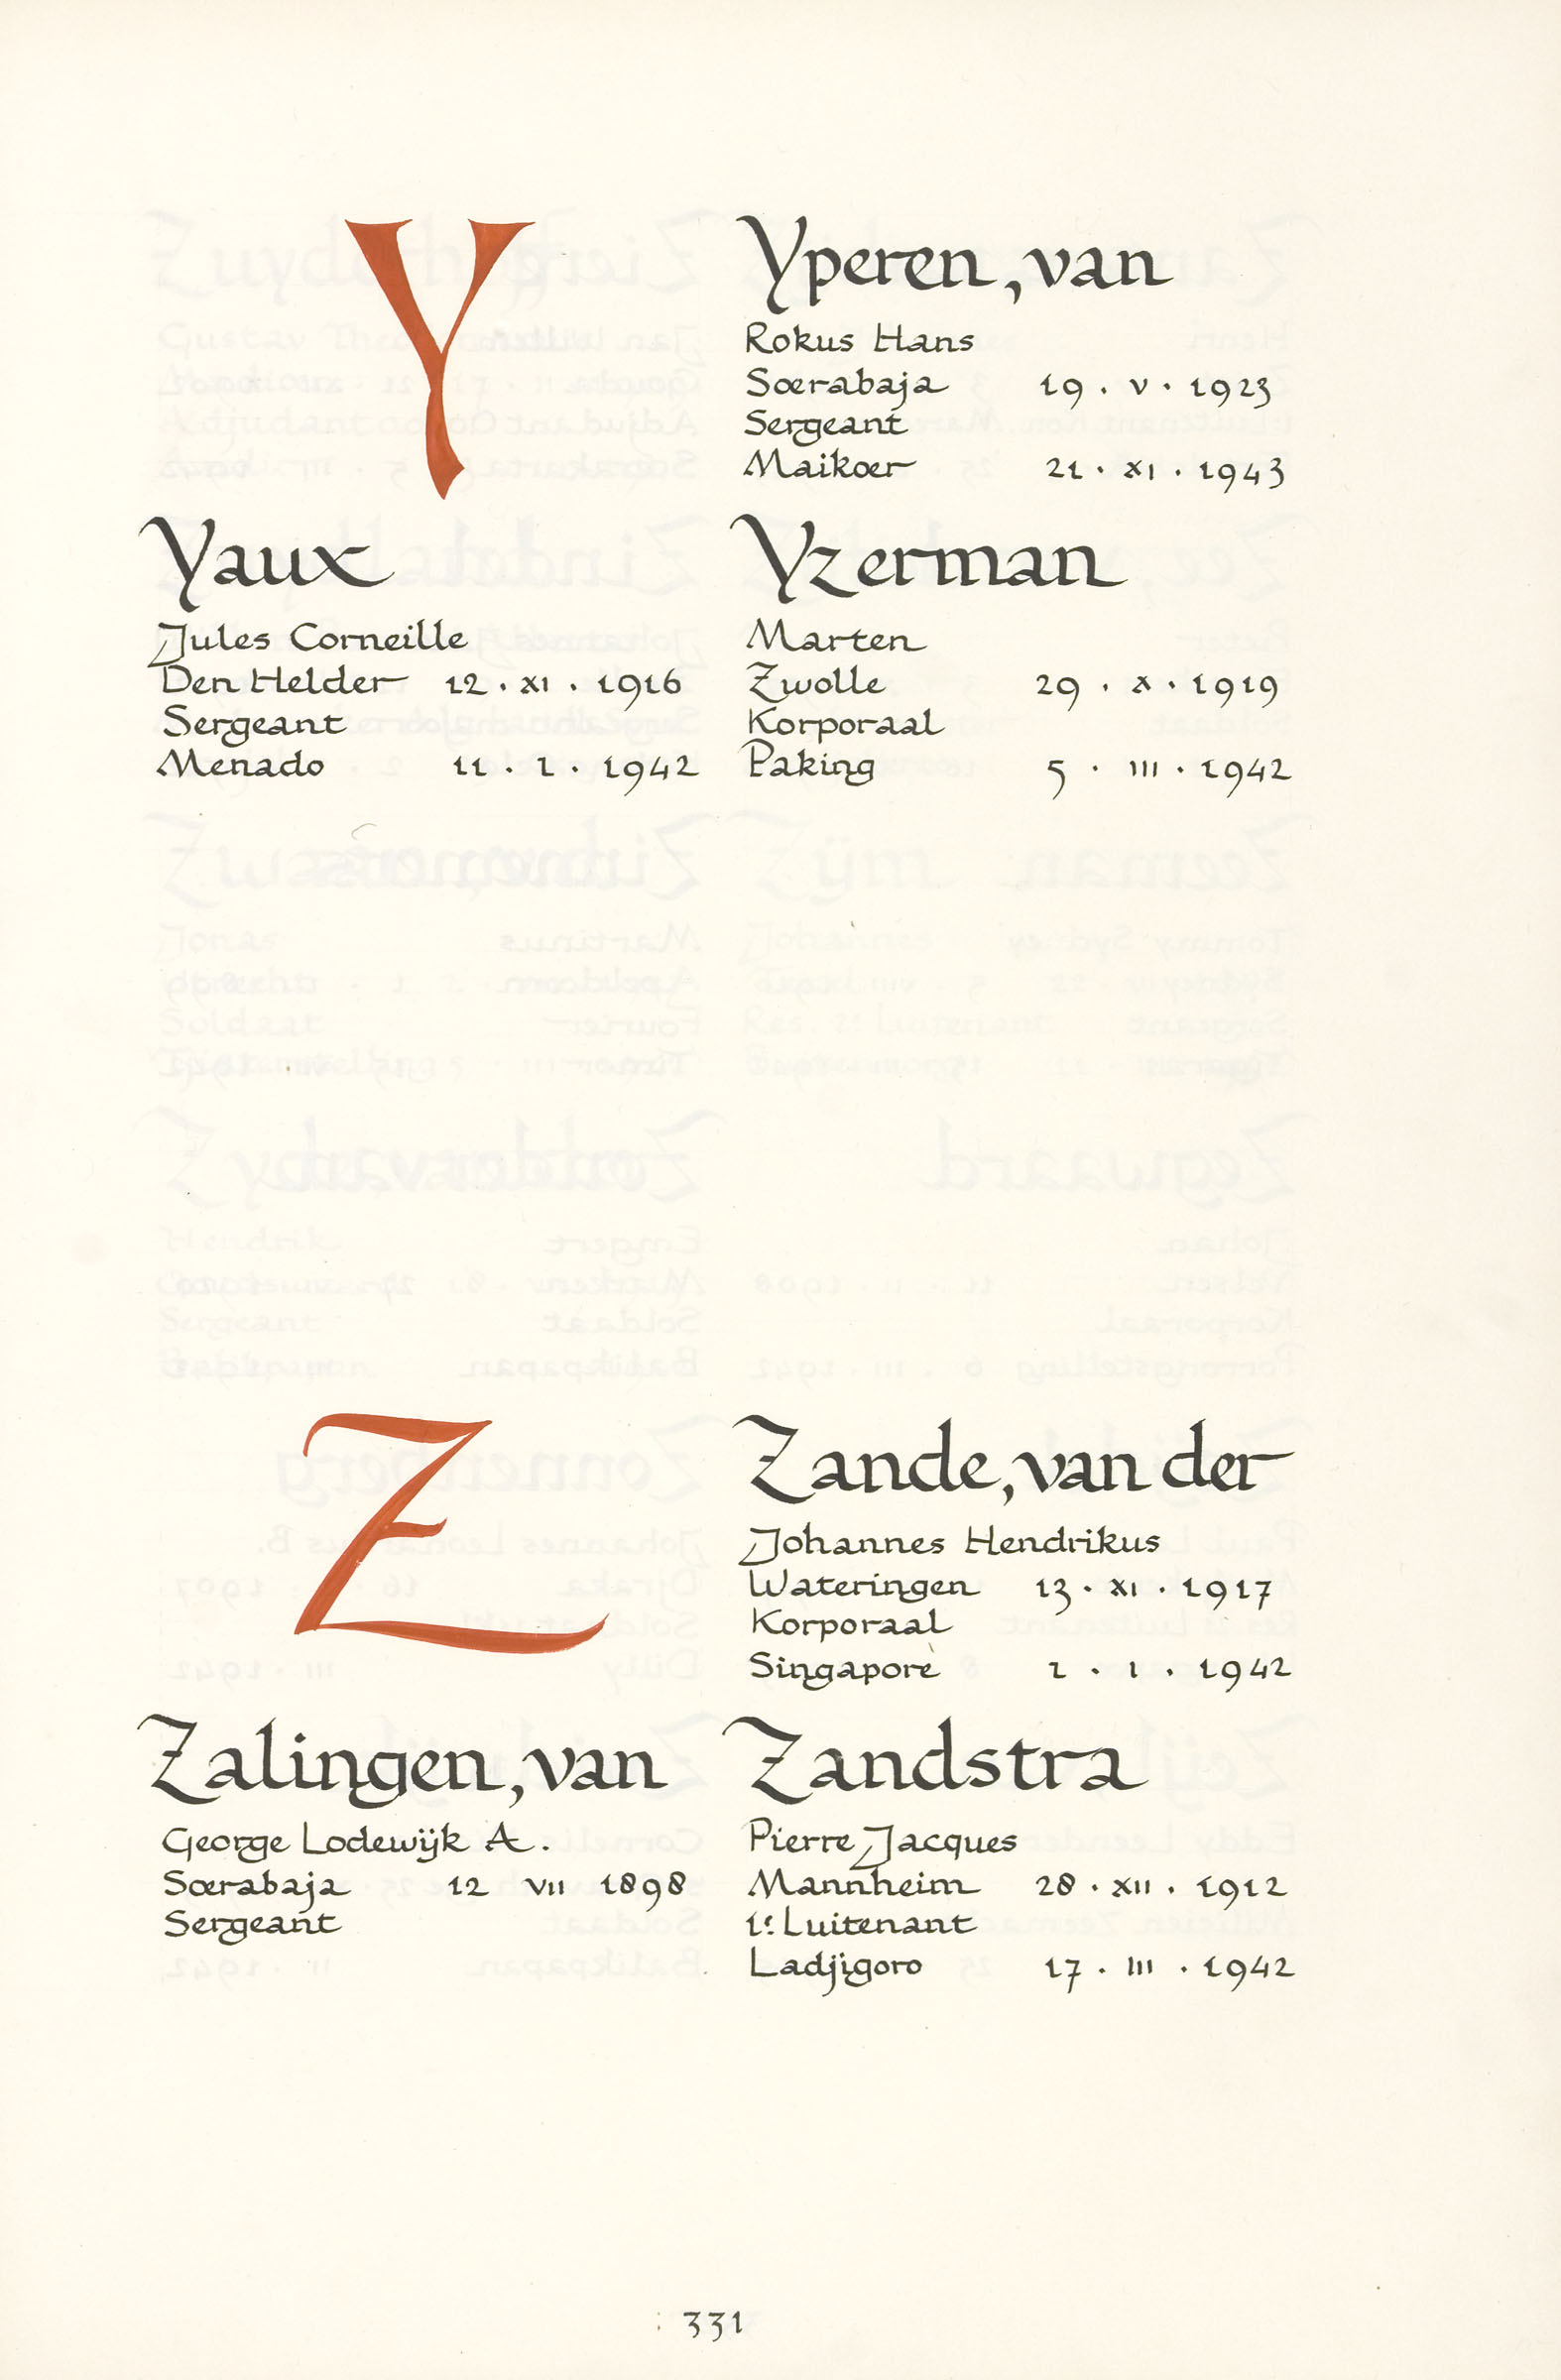 Y
Yaux
Jules Corneille
Den Helder 12 · XI · 1916
Sergeant
Menado 11 · 1 · 1942
Yperen, van
Rokus Hans
Soerabaja 19 · V · 1923
Sergeant
Maikoer 21 · XI · 1943
Yzerman
Marten
Zwolle 29 · X · 1919
Korporaal
Paking 5 · III · 1942
Z
Zalingen, van
George Lodewijk A.
Soerabaja 12 VII 1898
Sergeant
Zande, van der
Johannes Hendrikus
Wateringen 13 · XI · 1917
Korporaal
Singapore 1 · I · 1942
Zandstra
Pierre Jacques
Mannheim 28 · XII · 1912
1e Luitenant
Ladjigoro 17 · III · 1942
331